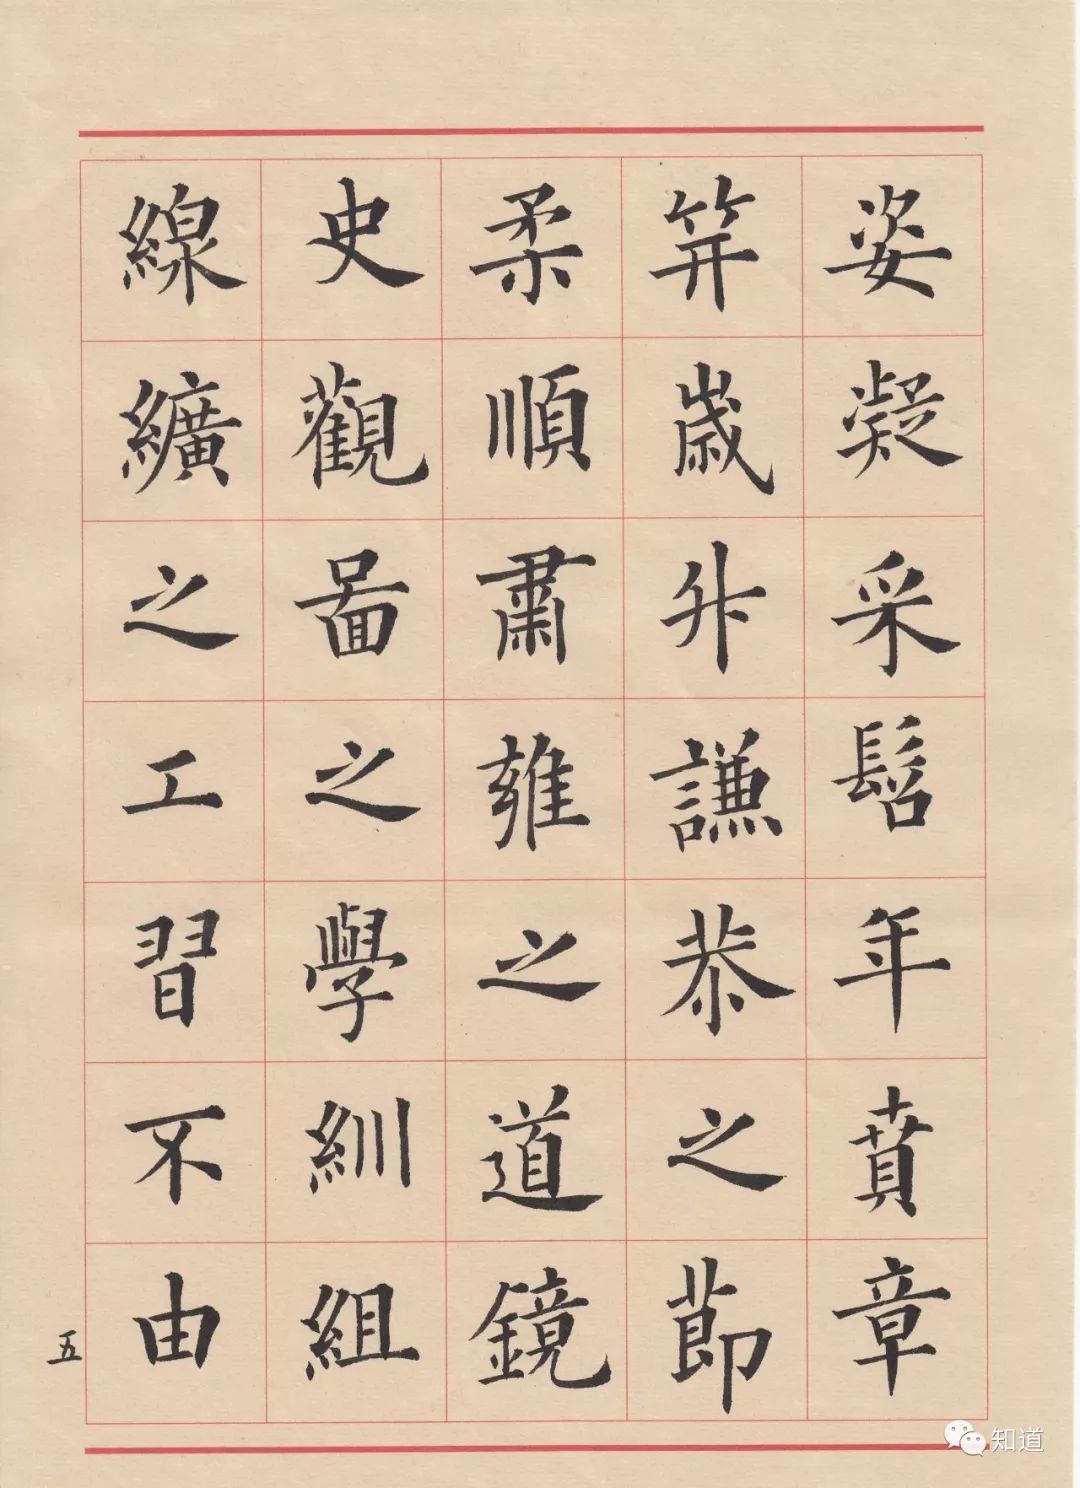 姿凝采髫年賁章
笄歲升謙恭之節
柔順肅雍之道鏡
史觀啚之學紃組
線纊之工習不由
五
知道